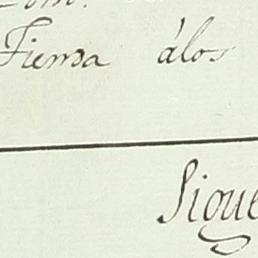 Tienda álos
Sigue